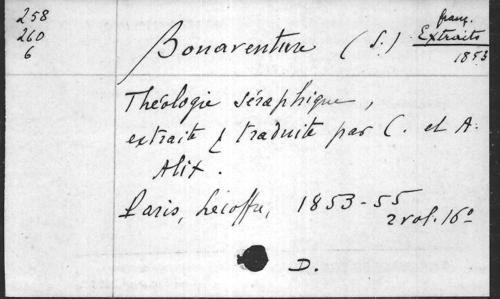 258
260
6
Bonaventure (S.)
franç.
Extraits
1853
Théologie séraphique,
extraite & traduite par C. et A.
Alix.
Paris, Lecoffre, 1853-55
2 vol. 16°
D.